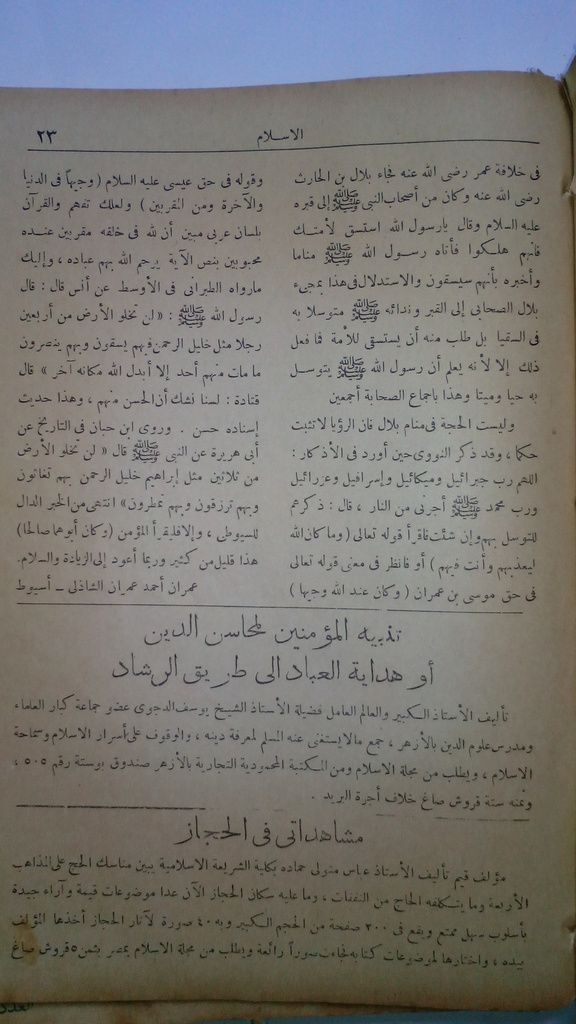 ٢٣
الاسلام
فى خلافة عمر رضى الله عنه فجاء بلال بن الحارث
رضى الله عنه وكان من أصحاب النبى ﷺ إلى قبره
عليه السلام وقال يارسول الله استسق لأمتك
فانهم هلكوا فأتاه رسول الله ﷺ مناما
وأخبره بأنهم سيسقون والاستدلال فى هذا بمجىء
بلال الصحابى إلى القبر وندائه ﷺ متوسلا به
فى السقيا بل طلب منه أن يستسقى للأمة فما فعل
ذلك إلا لأنه يعلم أن رسول الله ﷺ يتوسل
به حيا وميتا وهذا باجماع الصحابة أجمعين
وليست الحجة فى منام بلال فان الرؤيا لا تثبت
حكما ، وقد ذكر النووى حين أورد فى الأذكار :
اللهم رب جبرائيل وميكائيل وإسرافيل وعزرائيل
ورب محمد ﷺ أجرنى من النار ، قال : ذكرهم
للتوسل بهم وإن شئت فاقرأ قوله تعالى ( وما كان الله
ليعذبهم وأنت فيهم ) أو فانظر فى معنى قوله تعالى
فى حق موسى بن عمران ( وكان عند الله وجيها )
وقوله فى حق عيسى عليه السلام ( وجيهاً فى الدنيا
والآخرة ومن المقربين ) ولعلك تفهم والقرآن
بلسان عربى مبين أن لله فى خلقه مقربين عنده
محبوبين بنص الآية يرحم الله بهم عباده ، وإليك
مارواه الطبرانى فى الأوسط عن أنس قال : قال
رسول الله ﷺ : « لن تخلو الأرض من أربعين
رجلا مثل خليل الرحمن فبهم يسقون وبهم ينصرون
ما مات منهم أحد إلا أبدل الله مكانه آخر » قال
قتادة : لسنا نشك أن الحسن منهم ، وهذا حديث
إسناده حسن . وروى ابن حبان فى التاريخ عن
أبى هريرة عن النبى ﷺ قال « لن تخلو الأرض
من ثلاثين مثل إبراهيم خليل الرحمن بهم تغاثون
وبهم ترزقون وبهم تمطرون » انتهى من الخبر الدال
للسيوطى ، وإلا فليقرأ المؤمن ( وكان أبوهما صالحا )
هذا قليل من كثير وربما أعود إلى الزيادة والسلام.
عمران أحمد عمران الشاذلى ــ أسيوط
تنبيه المؤمنين لمحاسن الدين
أو هداية العباد الى طريق الرشاد
تأليف الأستاذ الكبير والعالم العامل فضيلة الأستاذ الشيخ يوسف الدجوى عضو جماعة كبار العلماء
ومدرس علوم الدين بالأزهر ، جمع مالا يستغنى عنه المسلم لمعرفة دينه ، والوقوف على أسرار الاسلام وسماحة
الاسلام ، ويطلب من مجلة الاسلام ومن المكتبة المحمودية التجارية بالأزهر صندوق بوستة رقم ٥٠٥ ،
وثمنه ستة قروش صاغ خلاف أجرة البريد .
مشاهداتى فى الحجاز
مؤلف قيم تأليف الأستاذ عباس متولى حماده بكلية الشريعة الاسلامية يبين مناسك الحج على المذاهب
الأربعة وما يتكلفه الحاج من النفقات ، وما عليه سكان الحجاز الآن عدا موضوعات قيمة وآراء جيدة
بأسلوب سهل ممتع ويقع فى ٢٠٠ صفحة من الحجم الكبير وبه ٤٠ صورة لآثار الحجاز أخذها المؤلف
بيده ، واختارها لموضوعات كتابه فجاءت صوراً رائعة ويطلب من مجلة الاسلام بمصر بثمن ٥ قروش صاغ